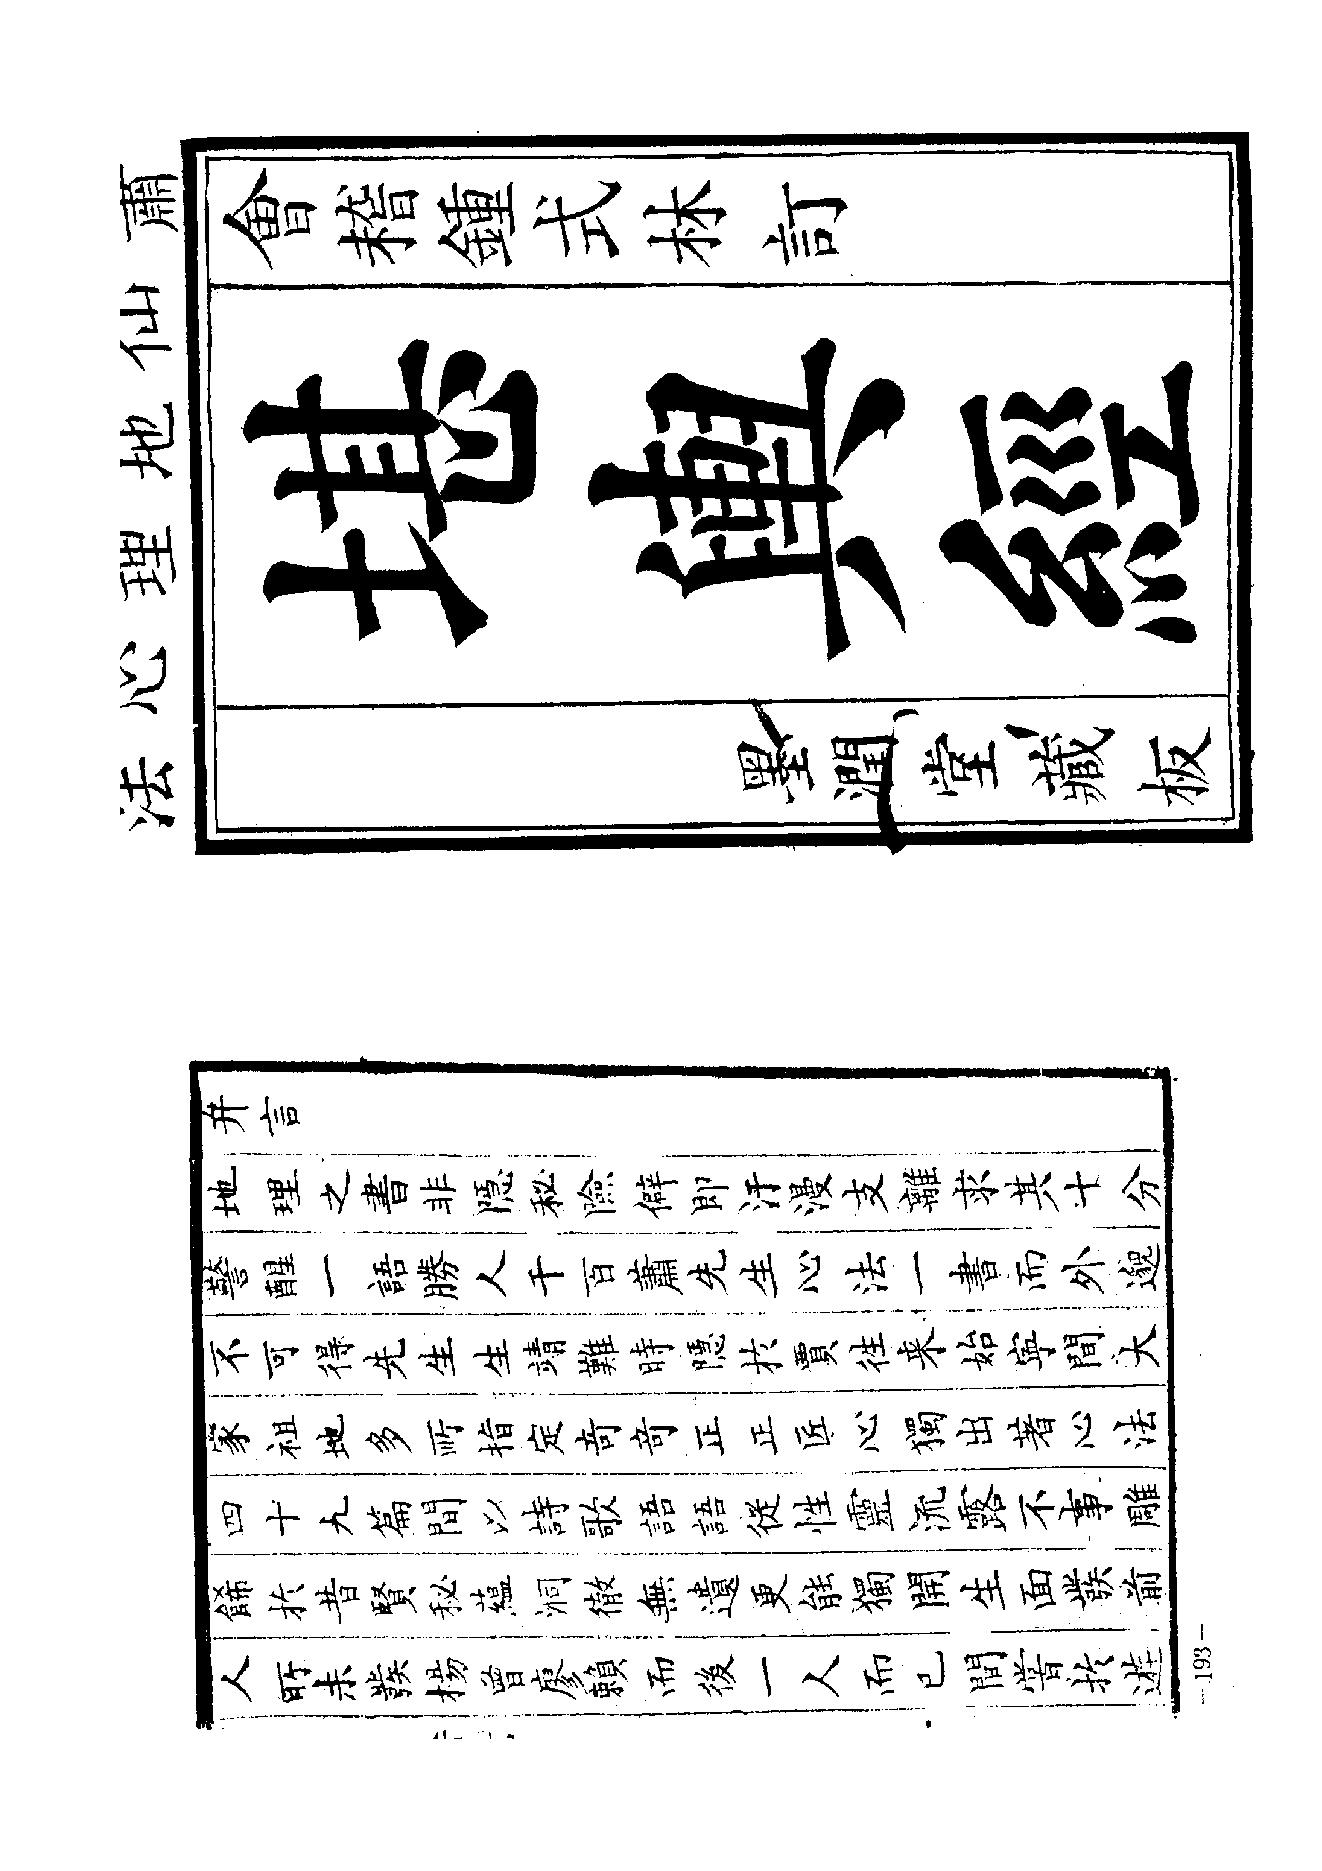 蕭仙地理心法
會稽鍾式林訂
堪輿經
墨潤堂藏板
弁言
地理之書非隱秘險僻即汗漫支離求其十分
警醒一語勝人千百蕭先生心法一書而外邈
不可得先生生靖難時隱於賈往来始寧間大
家祖地多所指定奇奇正正匠心獨出著心法
四十九篇間以詩歌語語從性靈流露不事雕
餙於昔賢秘蘊洞徹無遺更能獨開生面發前
人所未發楊曾廖賴而後一人而已間嘗於遊
—193—